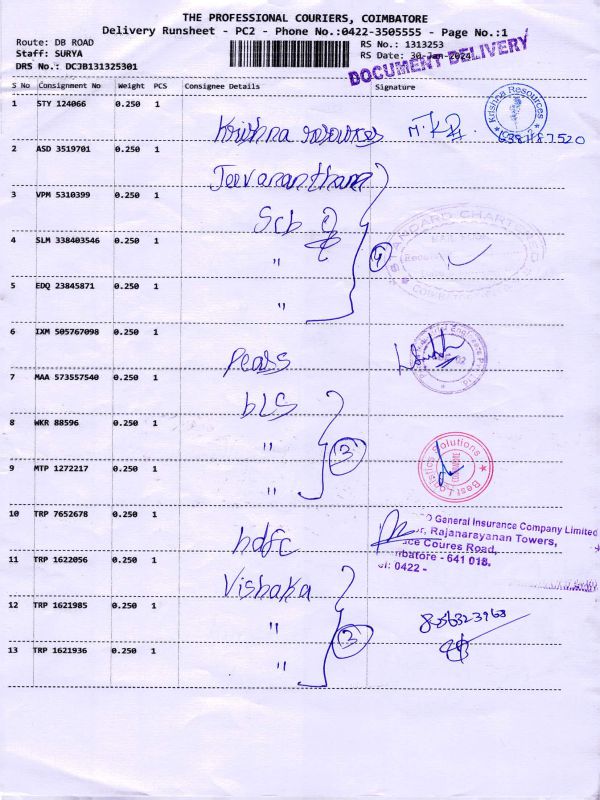 THE PROFESSIONAL COURIERS, COIMBATORE
Delivery Runsheet - PC2 - Phone No.:0422-3505555 - Page No.:1
Route: DB ROAD
Staff: SURYA
DRS No.: DCJB131325301
RS No.: 1313253
RS Date: 30-Jan-2024
DOCUMENT DELIVERY
S No Consignment No Weight PCS Consignee Details Signature
1 STY 124066 0.250 1 Krishna resources
Krishna Resources
2 ASD 3519701 0.250 1 Jeevanantham
3 VPM 5310399 0.250 1 Scb
4 SLM 338403546 0.250 1 "
4
STANDARD CHARTERED
COIMBATORE
5 EDQ 23845871 0.250 1 "
6 IXM 505767098 0.250 1
7 MAA 573557540 0.250 1 bLS
8 WKR 88596 0.250 1 "
3
Best Logistics Solutions
COIMBATORE
9 MTP 1272217 0.250 1 "
10 TRP 7652678 0.250 1 hdfc
General Insurance Company Limited
Rajanarayanan Towers,
Coures Road,
- 641 018.
0422 -
11 TRP 1622056 0.250 1 Vishaka
12 TRP 1621985 0.250 1 "
3
13 TRP 1621936 0.250 1 "